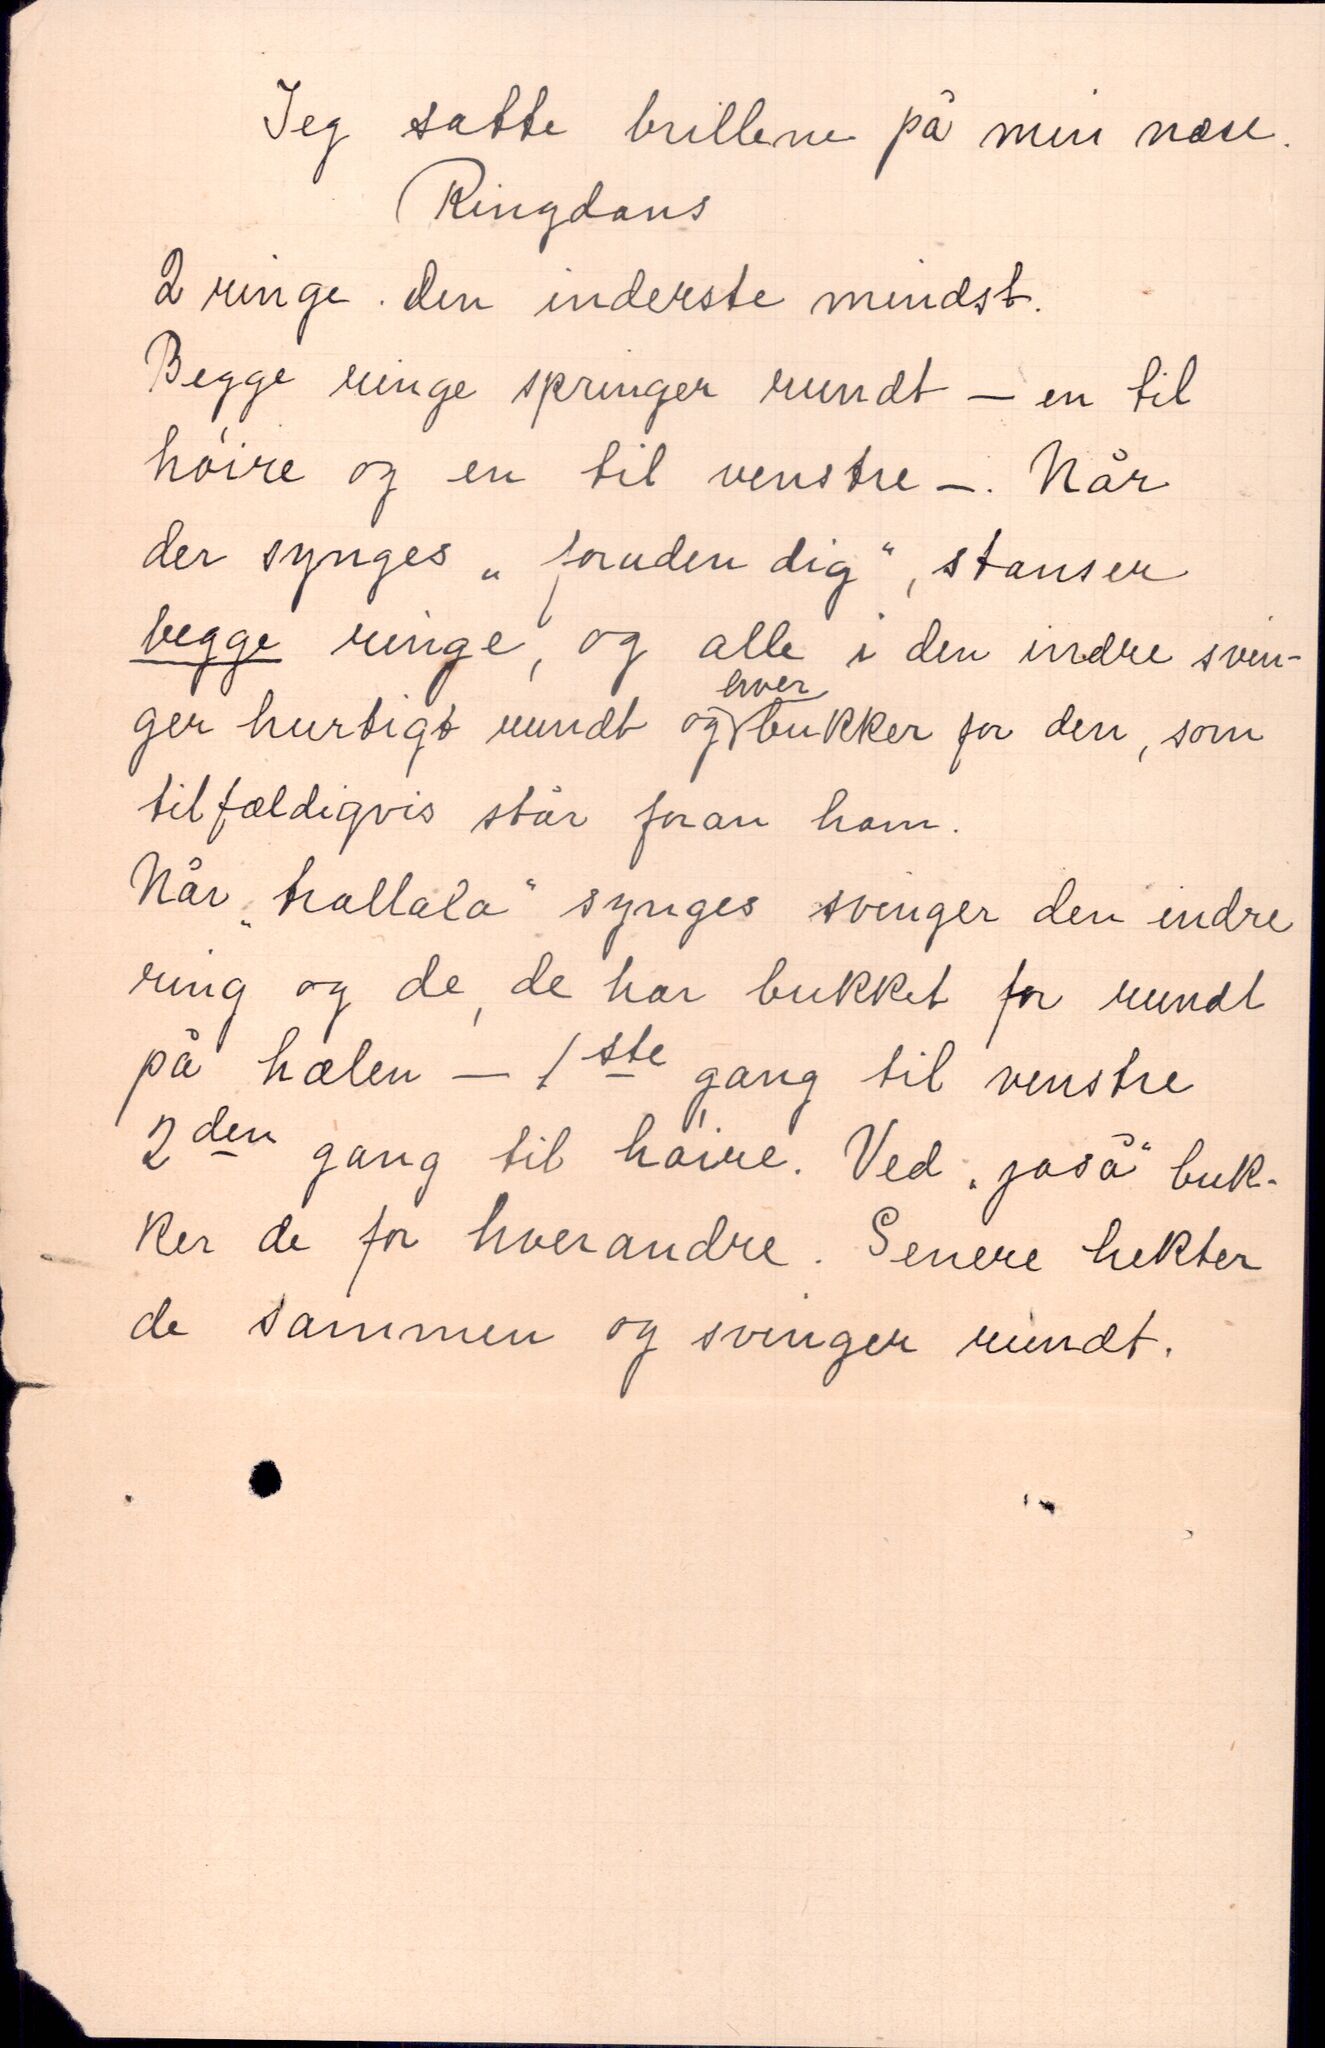 Jeg satte brillene på min næse.
Ringdans
2 ringe. den inderste mindst.
Begge ringe springer rundt – en til
høire og en til venstre –. Når
der synges „foruden dig“, stanser
begge ringe, og alle i den indre svin-
hver
ger hurtigt rundt og bukker for den, som
tilfældigvis står foran ham.
Når „trallala“ synges svinger den indre
ring og de, de har bukket for rundt
på hælen – 1ste gang til venstre
2den gang til høire. Ved „jaså“ buk-
ker de for hverandre. Senere hekter
de sammen og svinger rundt.